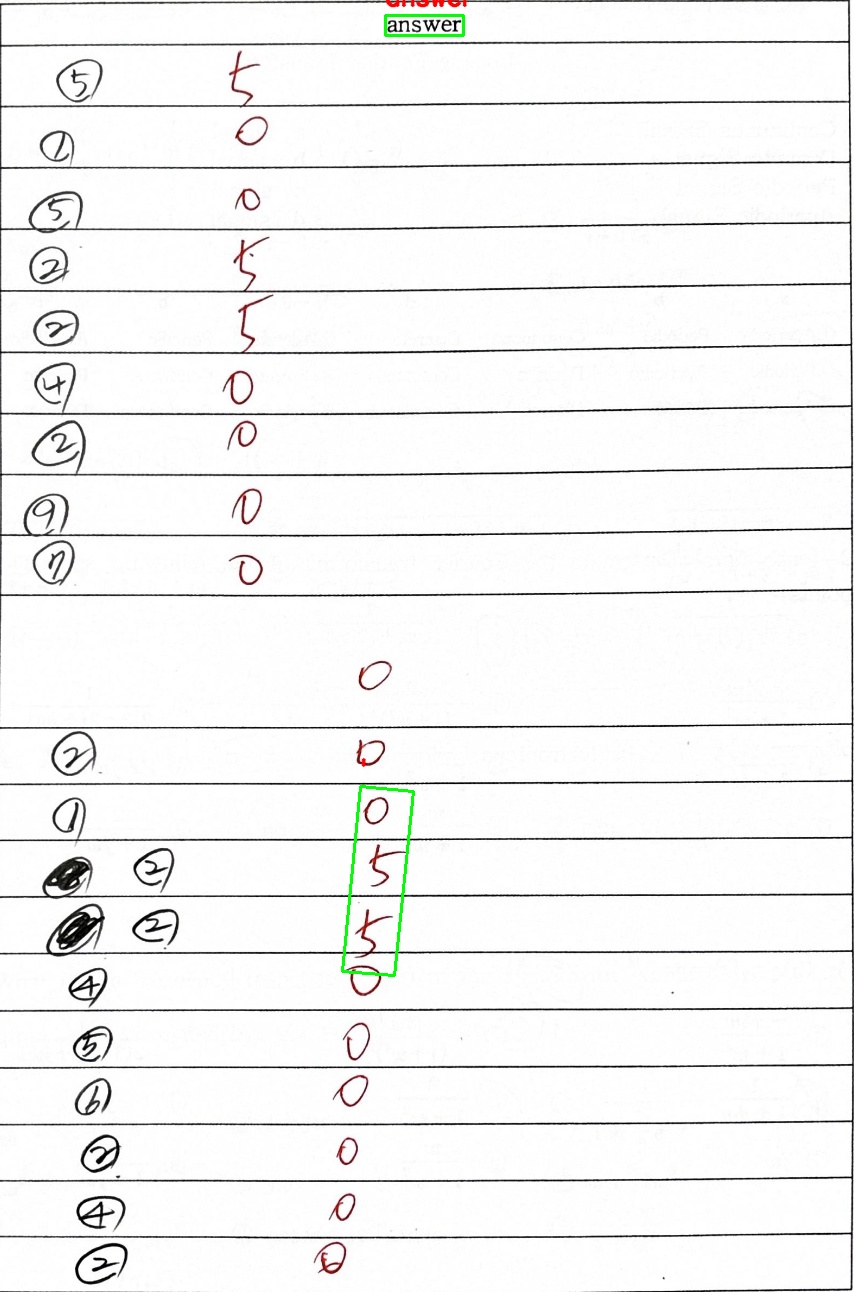 answer
answer
⑤ 5
① 0
⑤ 0
② 5
② 5
④ 0
② 0
⑨ 0
⑦ 0
0
② 0
① 0
② 5
② 5
④ 0
⑤ 0
⑥ 0
② 0
④ 0
② 0